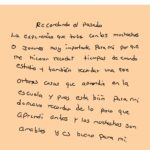 Recordando el pasado
La experiencia que tuve con los muchachos
o jovenes muy importante para mi por que
me hicieron recordar tiempos de cuando
estudie y también recordar una que
otras cosas que aprendia en la
escuela y pues esta bien para mi
de recordar de lo poco que
aprendi antes y los muchachos son
amables y es bueno para mi